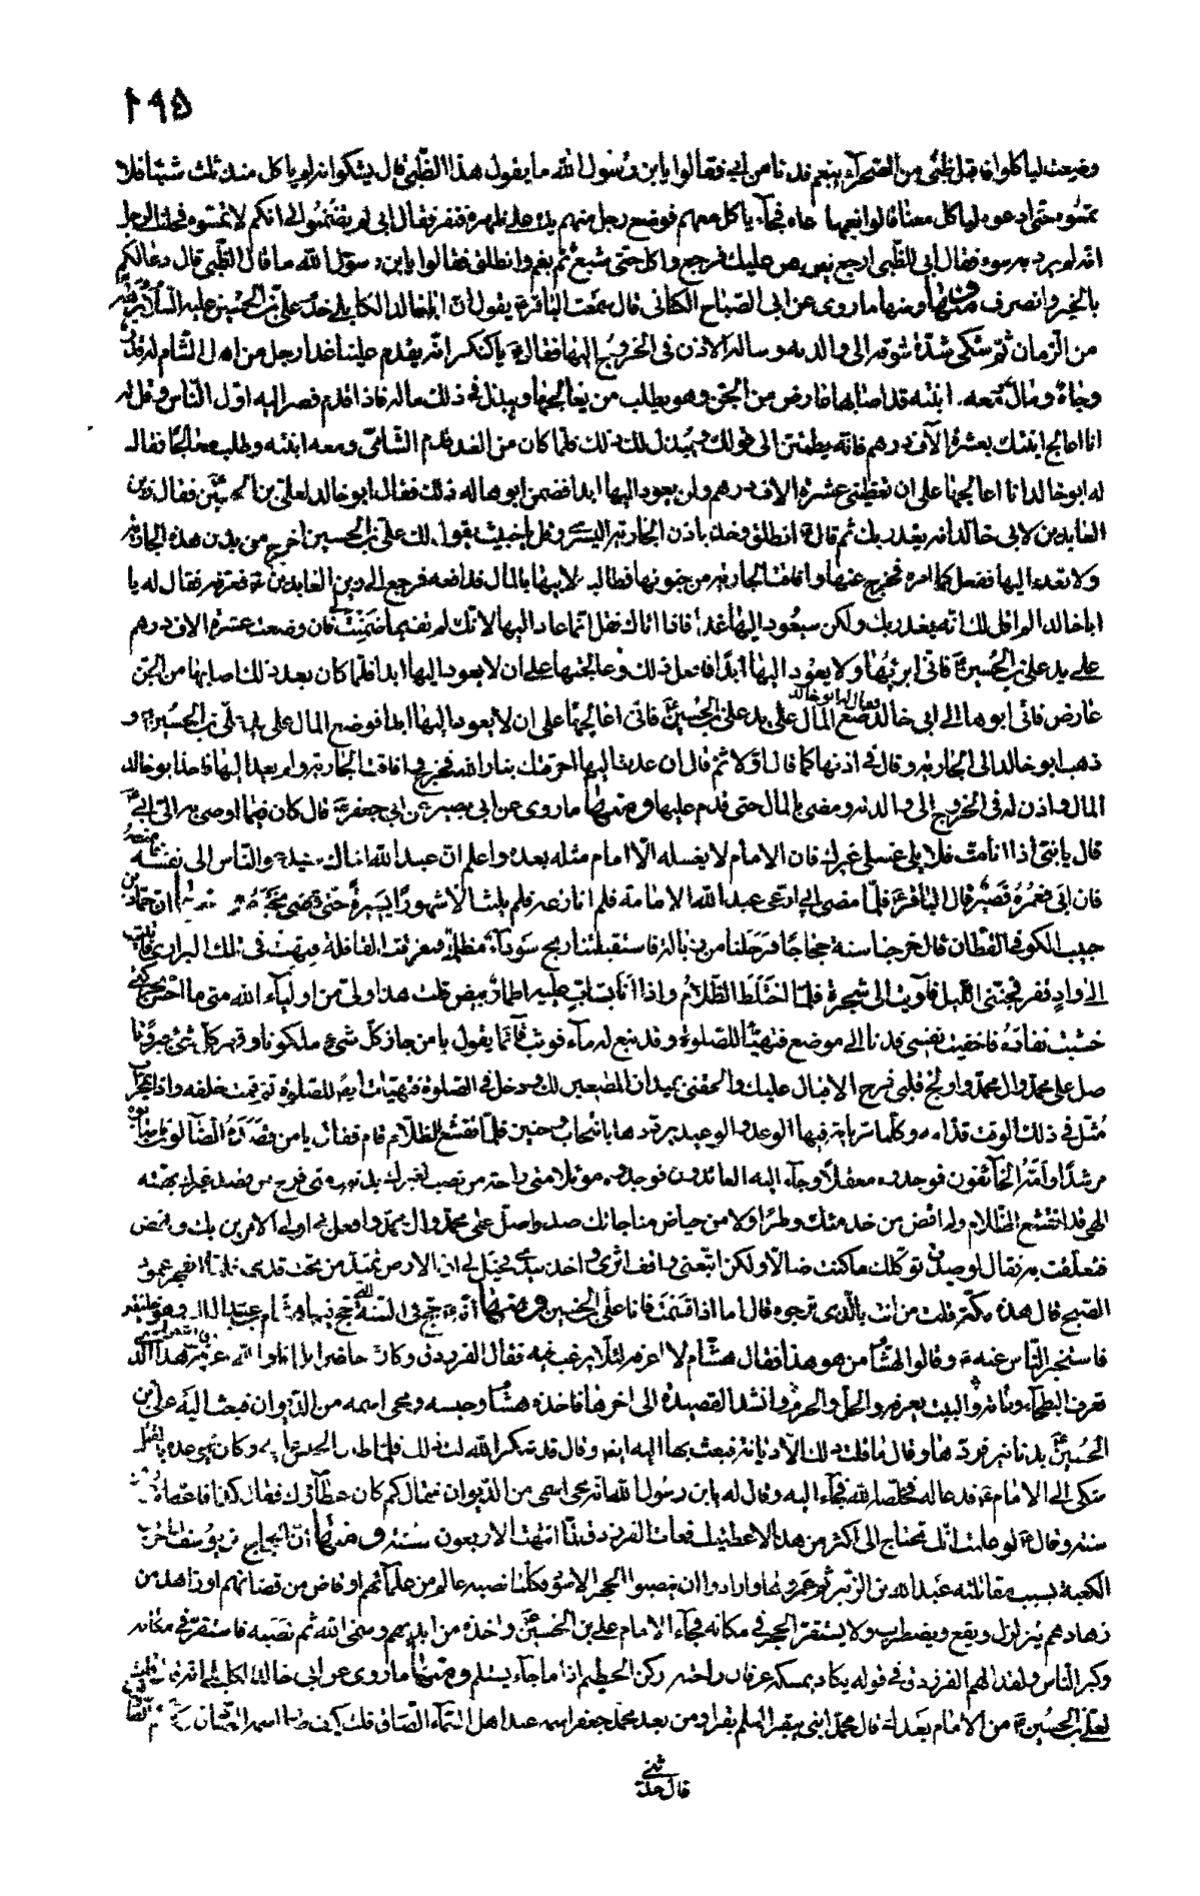 ١٩٥
وضعت لياكلوا فاقبل ظبى من الصحراء يبغم فدنا من ابى فقالوا يابن رسول الله ما يقول هذا الظبى قال يشكوا انه لم ياكل منذ ثلث شيئا فلا
تمسوه حتى ادعوه لياكل معنا قالوا نعم فدعاه فجاء ياكل معهم فوضع رجل منهم يده على ظهره فنفر فقال ابى لم تضمنوا لى انكم لا تمسوه فحلف الرجل
انه لم يرد به سوء فقال ابى للظبى ارجع فرجع واكل حتى شبع ثم بغم وانطلق فقالوا يابن رسول الله ما قال الظبى قال دعا لكم
بالخير وانصرف ومنها ما روى عن ابى الصباح الكنانى قال سمعت الباقر يقول ان ابا خالد الكابلى خدم على بن الحسين عليه السلام برهة
من الزمان ثم شكى شدة شوقه الى والدته وساله الاذن فى الخروج اليها فقال يا كنكر انه يقدم علينا غدا رجل من اهل الشام له قدر
وجاه ومال ومعه ابنته قد اصابها عارض من الجن وهو يطلب من يعالجها ويبذل فى ذلك ماله فاذا قدم فصر اليه اول الناس وقل له
انا اعالج ابنتك بعشرة الآف درهم فانه يطمئن الى قولك ويبذل لك ذلك فلما كان من الغد قدم الشامى ومعه ابنته وطلب معالجا فقال
له ابو خالد انا اعالجها على ان تعطينى عشرة الاف درهم ولن يعود اليها ابدا فضمن ابوها له ذلك فقال ابو خالد لعلى بن الحسين فقال زين
العابدين لابى خالد انه يغدر بك ثم قال انطلق وخذ باذن الجارية اليسرى وقل يا خبيث يقول لك على بن الحسين اخرج من بدن هذه الجارية
ولا تعد اليها ففعل كما امره فخرج عنها وافاقت الجارية من جنونها فطالبه لابيها بالمال فدافعه فرجع الى زين العابدين فعرفه فقال له يا
ابا خالد الم اقل لك انه يغدر بك ولكن سيعود اليها غدا فاذا اتاك فقل انما عاد اليها لانك لم تف بما ضمنت فان وضعت عشرة الاف درهم
على يد على بن الحسين فانى ابرئها ولا يعود اليها ابدا
عارض فاتى ابوها الى ابى خالد فقال له ابو خالد ضع المال على يد على بن الحسين فانى اعالجها على ان لا يعود اليها ابدا فوضع المال على يد على بن الحسين و
ذهب ابو خالد الى الجارية وقال فى اذنها كما قال اولا ثم قال ان عدت اليها احرقتك بنار الله فخرج وافاقت الجارية ولم يعد اليها فاخذ ابو خالد
المال واذن له فى الخروج الى والدته ومضى بالمال حتى قدم عليها ومنها ما روى عن ابى بصير عن ابى جعفر قال كان فيما اوصى به الى ابى
قال يا بنى اذا انا مت فلا يلى غسلى غيرك فان الامام لا يغسله الا امام مثله بعده واعلم ان عبد الله اخاك سيدعو الناس الى نفسه فامنعه
فان ابى فعمره قصير قال الباقر فلما مضى ابى ادعى عبد الله الامامة فلم انازعه فلم يلبث الا شهورا يسيرة حتى قضى نحبه ان حماد بن
حبيب الكوفى القطان قال خرجنا سنة حجاجا فرحلنا من زبالة فاستقبلتنا ريح سوداء مظلمة فتفرقت القافلة فتهت فى تلك البرارى فانتهيت
الى واد قفر فجننى الليل فآويت الى شجرة فلما اختلط الظلام واذا انا بشاب عليه اطمار بيض قلت هذا ولى من اولياء الله متى ما احس بحركتى
خشيت نفاده فاخفيت نفسى فدنا الى موضع فتهيأ للصلوة وقد نبع له ماء فوثب قائما يقول يا من حاز كل شئ ملكوتا وقهر كل شئ جبروتا
صل على محمد وآل محمد واولج قلبى فرح الاقبال عليك والحقنى بميدان المطيعين لك ودخل فى الصلوة فتهيأت ايضا للصلوة ثم قمت خلفه واذا بمحراب
مثل فى ذلك الوقت قدامه وكلما مر باية فيها الوعد والوعيد يرددها بانتحاب وحنين فلما تقشع الظلام قام فقال يا من قصده الضالون فاصابوه
مرشدا وامه الخائفون فوجدوه معقلا وجاء اليه العائدون فوجدوه موئلا متى راحة من نصب لغيرك بدنه ومتى فرح من قصد غيرك بهمته
الهى قد انقشع الظلام ولم اقض من خدمتك وطرا ولا من حياض مناجاتك صدرا صل على محمد وال محمد وافعل بى اولى الامرين بك ونهض
فتعلقت به فقال لو صدق توكلك ما كنت ضالا ولكن اتبعنى واقف اثرى واخذ بيدى فخيل لى ان الارض تميد من تحت قدمى فلما انفجر عمود
الصبح قال هذه مكة قلت من انت بالذى ترجوه قال اما اذا قسمت فانا على بن الحسين ومنها انه حج فى السنة التى حج فيها هشام بن عبد الملك وهو خليفة
فاستجهر الناس عنه وقالوا لهشام من هو هذا فقال هشام لا اعرفه لئلا يرغب فيه فقال الفرزدق وكان حاضرا انا اعرفه هذا الذى
تعرف البطحاء وطأته والبيت يعرفه والحل والحرم وانشد القصيدة الى اخرها فاخذه هشام وحبسه ومحى اسمه من الديوان فبعث اليه على بن
الحسين بدنانير فردها وقال ما قلت ذلك الا ديانة فبعث بها اليه ايضا وقال قد شكر الله لك ذلك فلما طال الحبس عليه وكان يوعده بالقتل
شكى الى الامام فدعا له فخلصه الله فجاء اليه وقال له يابن رسول الله انه محى اسمى من الديوان فقال كم كان عطاؤك فقال كذا فاعطاه
سنة وقال لو علمت انك تحتاج الى اكثر من هذا لاعطيتك فمات الفرزدق لما انتهت الاربعون سنة ومنها ان الحجاج بن يوسف لما خرب
الكعبة بسبب مقاتلته عبد الله بن الزبير ثم عمروها وارادوا ان ينصبوا الحجر الاسود فكلما نصبه عالم من علمائهم او قاض من قضاتهم او زاهد من
زهادهم يتزلزل ويقع ويضطرب ولا يستقر الحجر فى مكانه فجاء الامام على بن الحسين واخذه من ايديهم وسمى الله ثم نصبه فاستقر فى مكانه
وكبر الناس ولقد الهم الفرزدق فى قوله يكاد يمسكه عرفان راحته ركن الحطيم اذا ما جاء يستلم ومنها ما روى عن ابى خالد الكابلى انه قال قلت
لعلى بن الحسين من الامام بعدك قال محمد ابنى يبقر العلم بقرا ومن بعد محمد جعفر اسمه عند اهل السماء الصادق قلت كيف صار اسمه الصادق
قال حدثنى